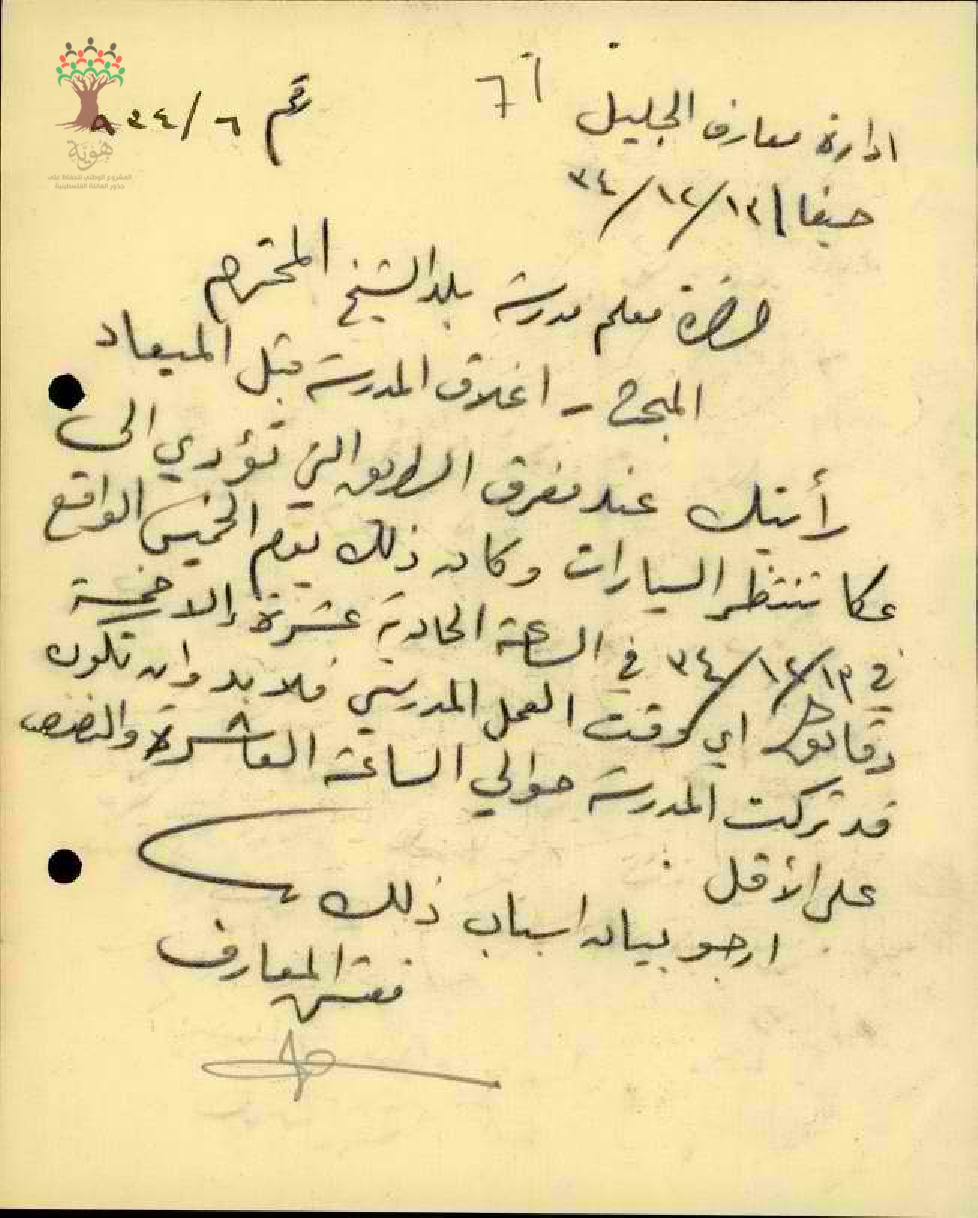 ادارة معارف الجليل
رقم ٦/٨٢٤
حيفا ١٣/١٢/٣٤
حضرة معلم مدرسة بلد الشيخ المحترم
المبحث - اغلاق المدرسة قبل الميعاد
رأيتك عند مفرق الطريق التي تؤدي الى
عكا تنتظر السيارات وكان ذلك يوم الخميس الواقع
في ١٣/١٢/٣٤ في الساعة الحادية عشرة إلا خمسة
دقائق اي وقت العمل المدرسي فلا بد وان تكون
قد تركت المدرسة حوالي الساعة العاشرة والنصف
على الأقل
ارجو بيان اسباب ذلك
مفتش المعارف
هوية
المشروع الوطني للحفاظ على
جذور العائلة الفلسطينية